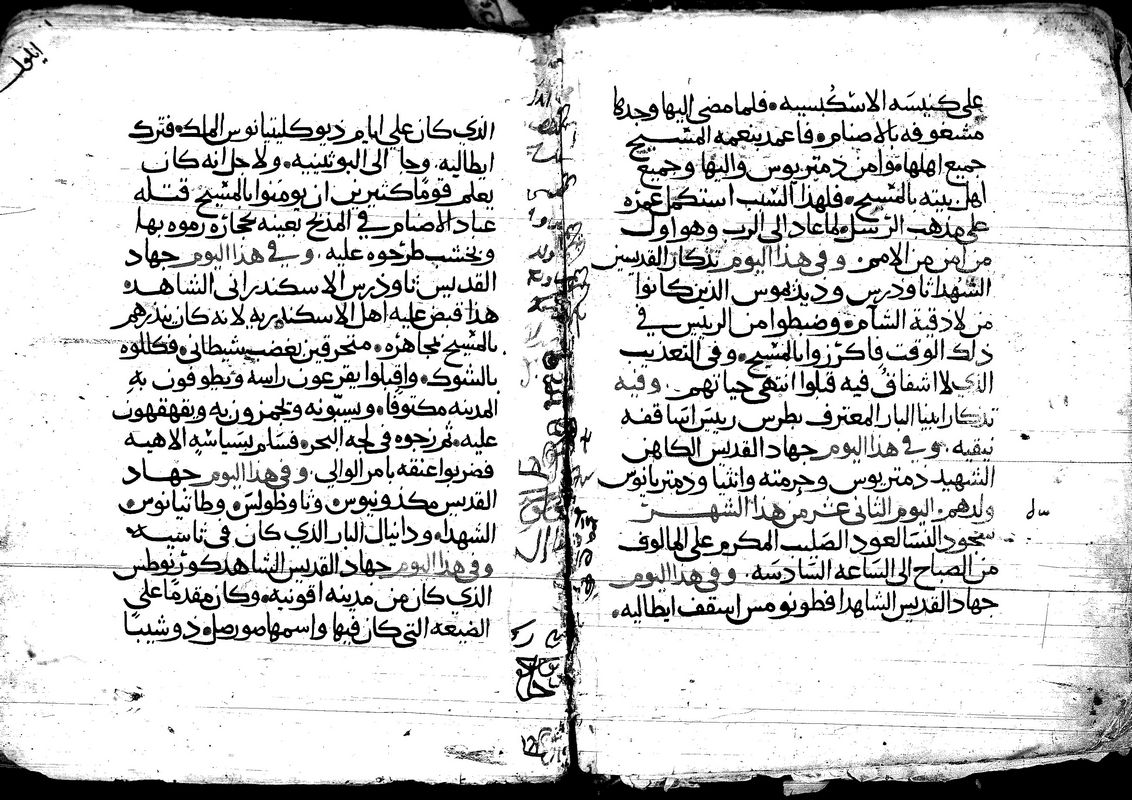 على كنيسه الاسكبسيه. فلما مضى اليها وجدها
مشعوفه بالاصنام. فاعمد بنعمه المسيح
جميع اهلها. وامن دمتريوس واليها وجميع
اهل بيته بالمسيح. فلهذا السبب استكمل عمره
على مذهب الرسل. لما عاد الى الرب وهو اول
من امن من الامم. وفي هذا اليوم تذكار القديسين
الشهدا ثاودرس وديديموس الذين كانوا
من لادقية الشام. وضبطوا من الرييس في
ذلك الوقت فاكرزوا بالمسيح. وفي التعذيب
الذي لا اشفاق فيه قبلوا انتهى حياتهم. وفيه
تذكار ابينا البار المعترف بطرس رييس اساقفه
نيقيه. وفي هذا اليوم جهاد القديس الكاهن
الشهيد دمتريوس وحرمته وانثيا ودمتريانوس
ولدهم. اليوم الثاني عشر من هذا الشهر
سجود النسا لعود الصليب المكرم على المالوف
من الصباح الى الساعه السادسه. وفي هذا اليوم
جهاد القديس الشاهد افطونومس اسقف ايطاليه.
ايلول
الذي كان على ايام ذيوكليتيانوس الملك. فترك
ايطاليه. وجا الى البوثينيه. ولاجل انه كان
يعلم قوما كثيرين ان يومنوا بالمسيح قتله
عباد الاصنام في المذبح بعينه بحجاره رموه بها
وبخشب طرحوه عليه. وفي هذا اليوم جهاد
القديس ثاودرس الاسكندراني الشاهد.
هذا قبض عليه اهل الاسكندريه لانه كان ينذرهم
بالمسيح مجاهره. منحرقين بغضب شيطاني. فكللوه
بالشوك. واقبلوا يقرعون راسه ويطوفون به
المدينه مكتوفا. ويسبونه ويغمزون به ويقهقهون
عليه. ثم زجوه في لجه البحر. فسلم بسياسه الاهيه
فضربوا عنقه بامر الوالي. وفي هذا اليوم جهاد
القديس مكدونيوس وثاوظولس وطاتيانوس
الشهدا. ودانيال البار الذي كان في ثاسيه
وفي هذا اليوم جهاد القديس الشاهد كورنوطس
الذي كان من مدينه اقونيه. وكان مقدما على
الضيعه التي كان فيها واسمها صورصل. ذو شيبا